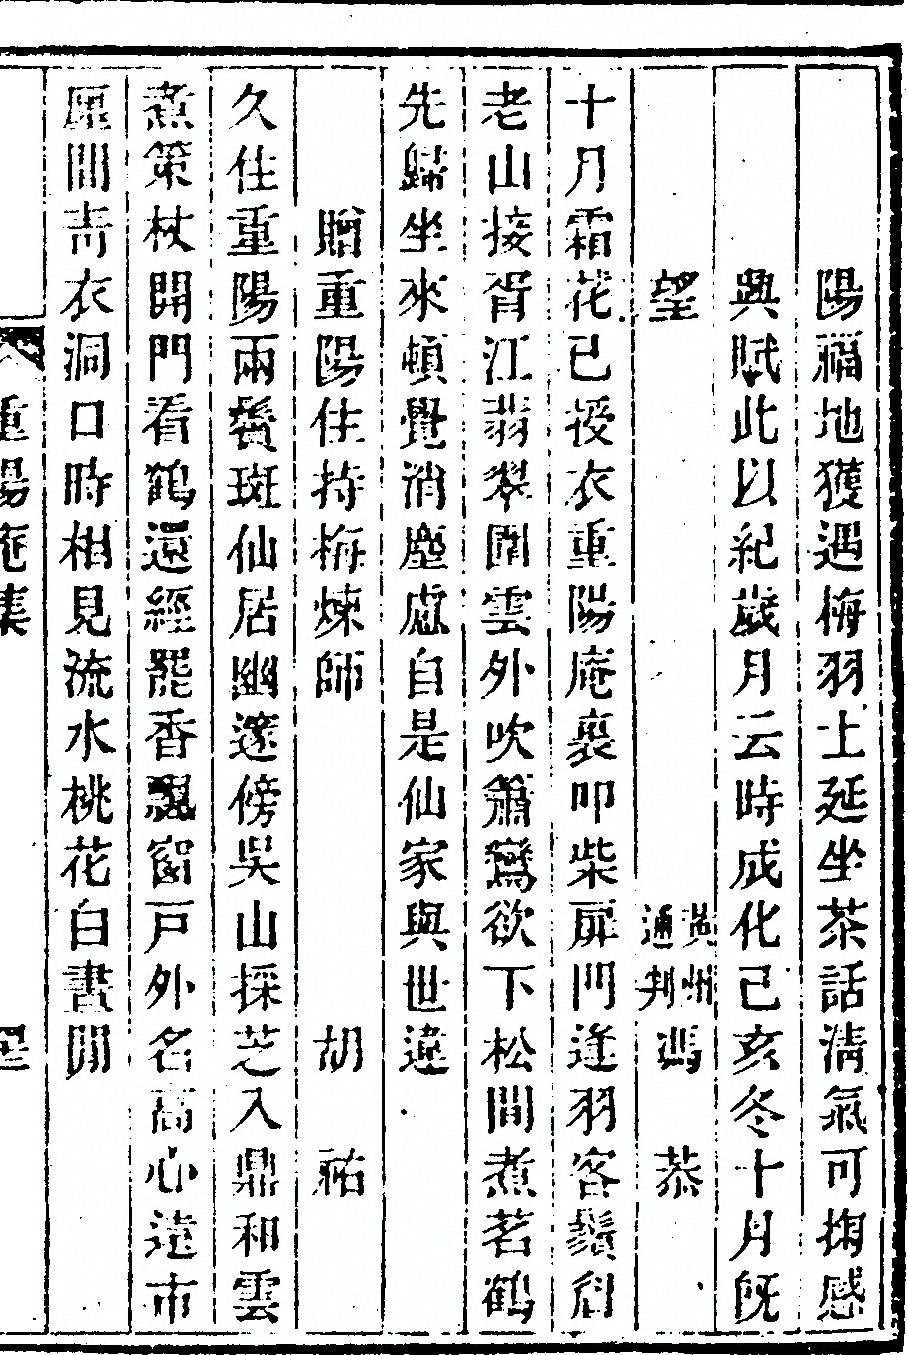 陽福地獲遇梅羽士延坐茶話清氣可掬感
興賦此以紀歲月云時成化己亥冬十月既
望 黃州通判 馮 恭
十月霜花已授衣重陽庵裏叩柴扉門逢羽客鬚眉
老山接胥江翡翠圍雲外吹簫鸞欲下松間煮茗鶴
先歸坐來頓覺消塵慮自是仙家與世違
贈重陽住持梅煉師 胡 祐
久住重陽兩鬢斑仙居幽邃傍吳山採芝入鼎和雲
煮策杖開門看鶴還經罷香飄窗戶外名高心遠市
廛間青衣洞口時相見流水桃花白晝閒
重陽庵集